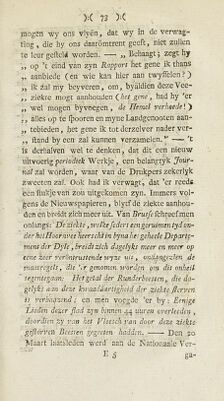 )( 73 )(
mogen wy ons vlyën, dat wy in de verwag-
ting, die hy ons daaromtrent geeft, niet zullen
te leur gesteld worden. —— „ Behaagt; zegt hy
„ op 't eind van zyn Rapport het gene ik thans
„ aanbiede (en wie kan hier aan twyffelen?)
„ ik zal my beyveren, om, byaldien deze Vee-
„ ziekte mogt aanhouden (het gene, had hy 'er
„ wel mogen byvoegen, de Hemel verhoede!)
„ alles op te spooren en myne Landgenooten aan-
„ tebieden, het gene ik tot derzelver nader ver-
„ stand by een zal kunnen verzamelen." —— 't
is derhalven wel te denken, dat dit een nieuw
uitvoerig periodiek Werkje, een belangryk Jour-
nal zal worden, waar van de Drukpers zekerlyk
zweeten zal. Ook had ik verwagt, dat 'er reeds
een stukje van zou uitgekomen zyn. Immers vol-
gens de Nieuwspapieren, blyft de ziekte aanhou-
den en breidt zich meer uit. Van Brussel schreef men
onlangs: De ziekte, welke federt een geruimen tyd on-
der het Hoornvee heerscht in byna het geheele Departe-
ment der Dyle, breidt zich dagelyks meer en meer op
eene zeer verontrustende wyze uit, ondangezien de
maatregels, die 'er zyn genomen worden om dit onheil
tegentegaan. Het getal der Runderbeesten, die dage-
lyks aan deze kwaadaardigheid der ziekte sterven
is verbazend; en men voegde 'er by: Eenige
Lieden dezer stad zyn binnen 44 uuren overleden,
doordien zy van het Vleesch van door deze ziekte
gestorven Beesten gegeten hadden. —— Den 20
Maart laatstleden werd aan de Nationaale Ver-
E 5
ga-